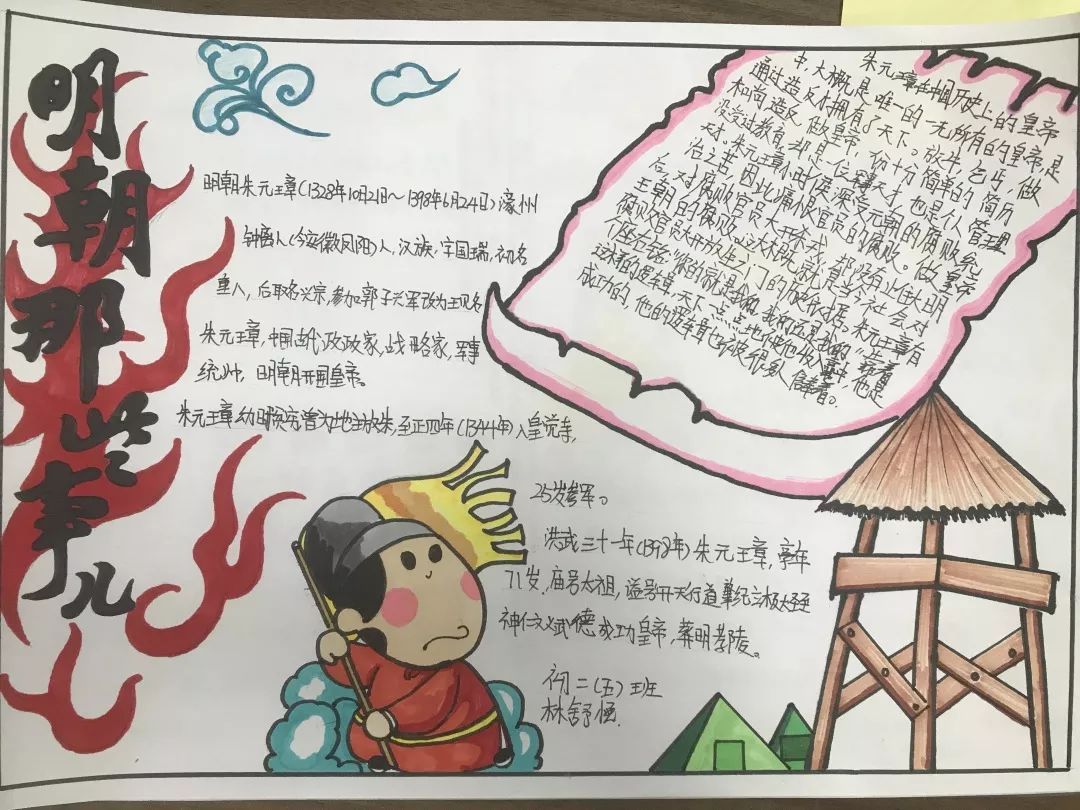 明朝那些事儿
明朝朱元璋(1328年10月21日～1398年6月24日)濠州
钟离人(今安徽凤阳)人,汉族,字国瑞,初名
重八,后取名兴宗,参加郭子兴军改为王名
朱元璋,中国古代政政家,战略家,军事
统帅,明朝开国皇帝。
朱元璋幼时贫穷曾为地主放朱至正四年(1344年)入皇觉寺,
25岁参军。
洪武三十一年(1398年)朱元璋,享年
71岁,庙号太祖,谥号开天行道肇纪立极大圣至
神仁文义武德成功皇帝,葬明孝陵。
初二(五)班
林舒恒
朱元璋在中国历史上的皇帝
中,大概是唯一的一无所有的皇帝是
通过造反才拥有了天下。放牛,乞丐,做
和尚,造反,做皇帝,一份十分简单的简历
没受过教育,却是一位军事天才,也是个管理
天才。朱元璋小时候深受元朝的腐败统
治之苦,因此痛恨官员的腐败。做皇帝
后,对腐败官员大开杀戒,却没有止住大明
王朝的腐败。这大概就是当今社会对
腐败官员大开放生之门的历史依据。朱元璋有
个座右铭:你的就是我的,我的还是我的,
成功的,他的逻辑也被很多人信奉着。